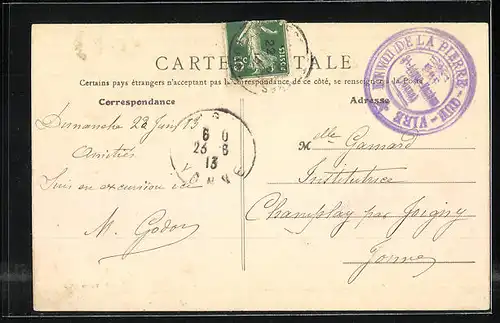 CARTE POSTALE
Certains pays étrangers n'acceptant pas la correspondance de ce côté, se renseigner à la Poste
Correspondance
Adresse
Dimanche 22 Juin 13
Amitiés
Suis en excursion ici
M. Godon
Mlle Gamard
Institutrice
Champlay par Joigny
Yonne
5c
POSTES
6 0
23 - 6
13
DE LA PIERRE
VIRE